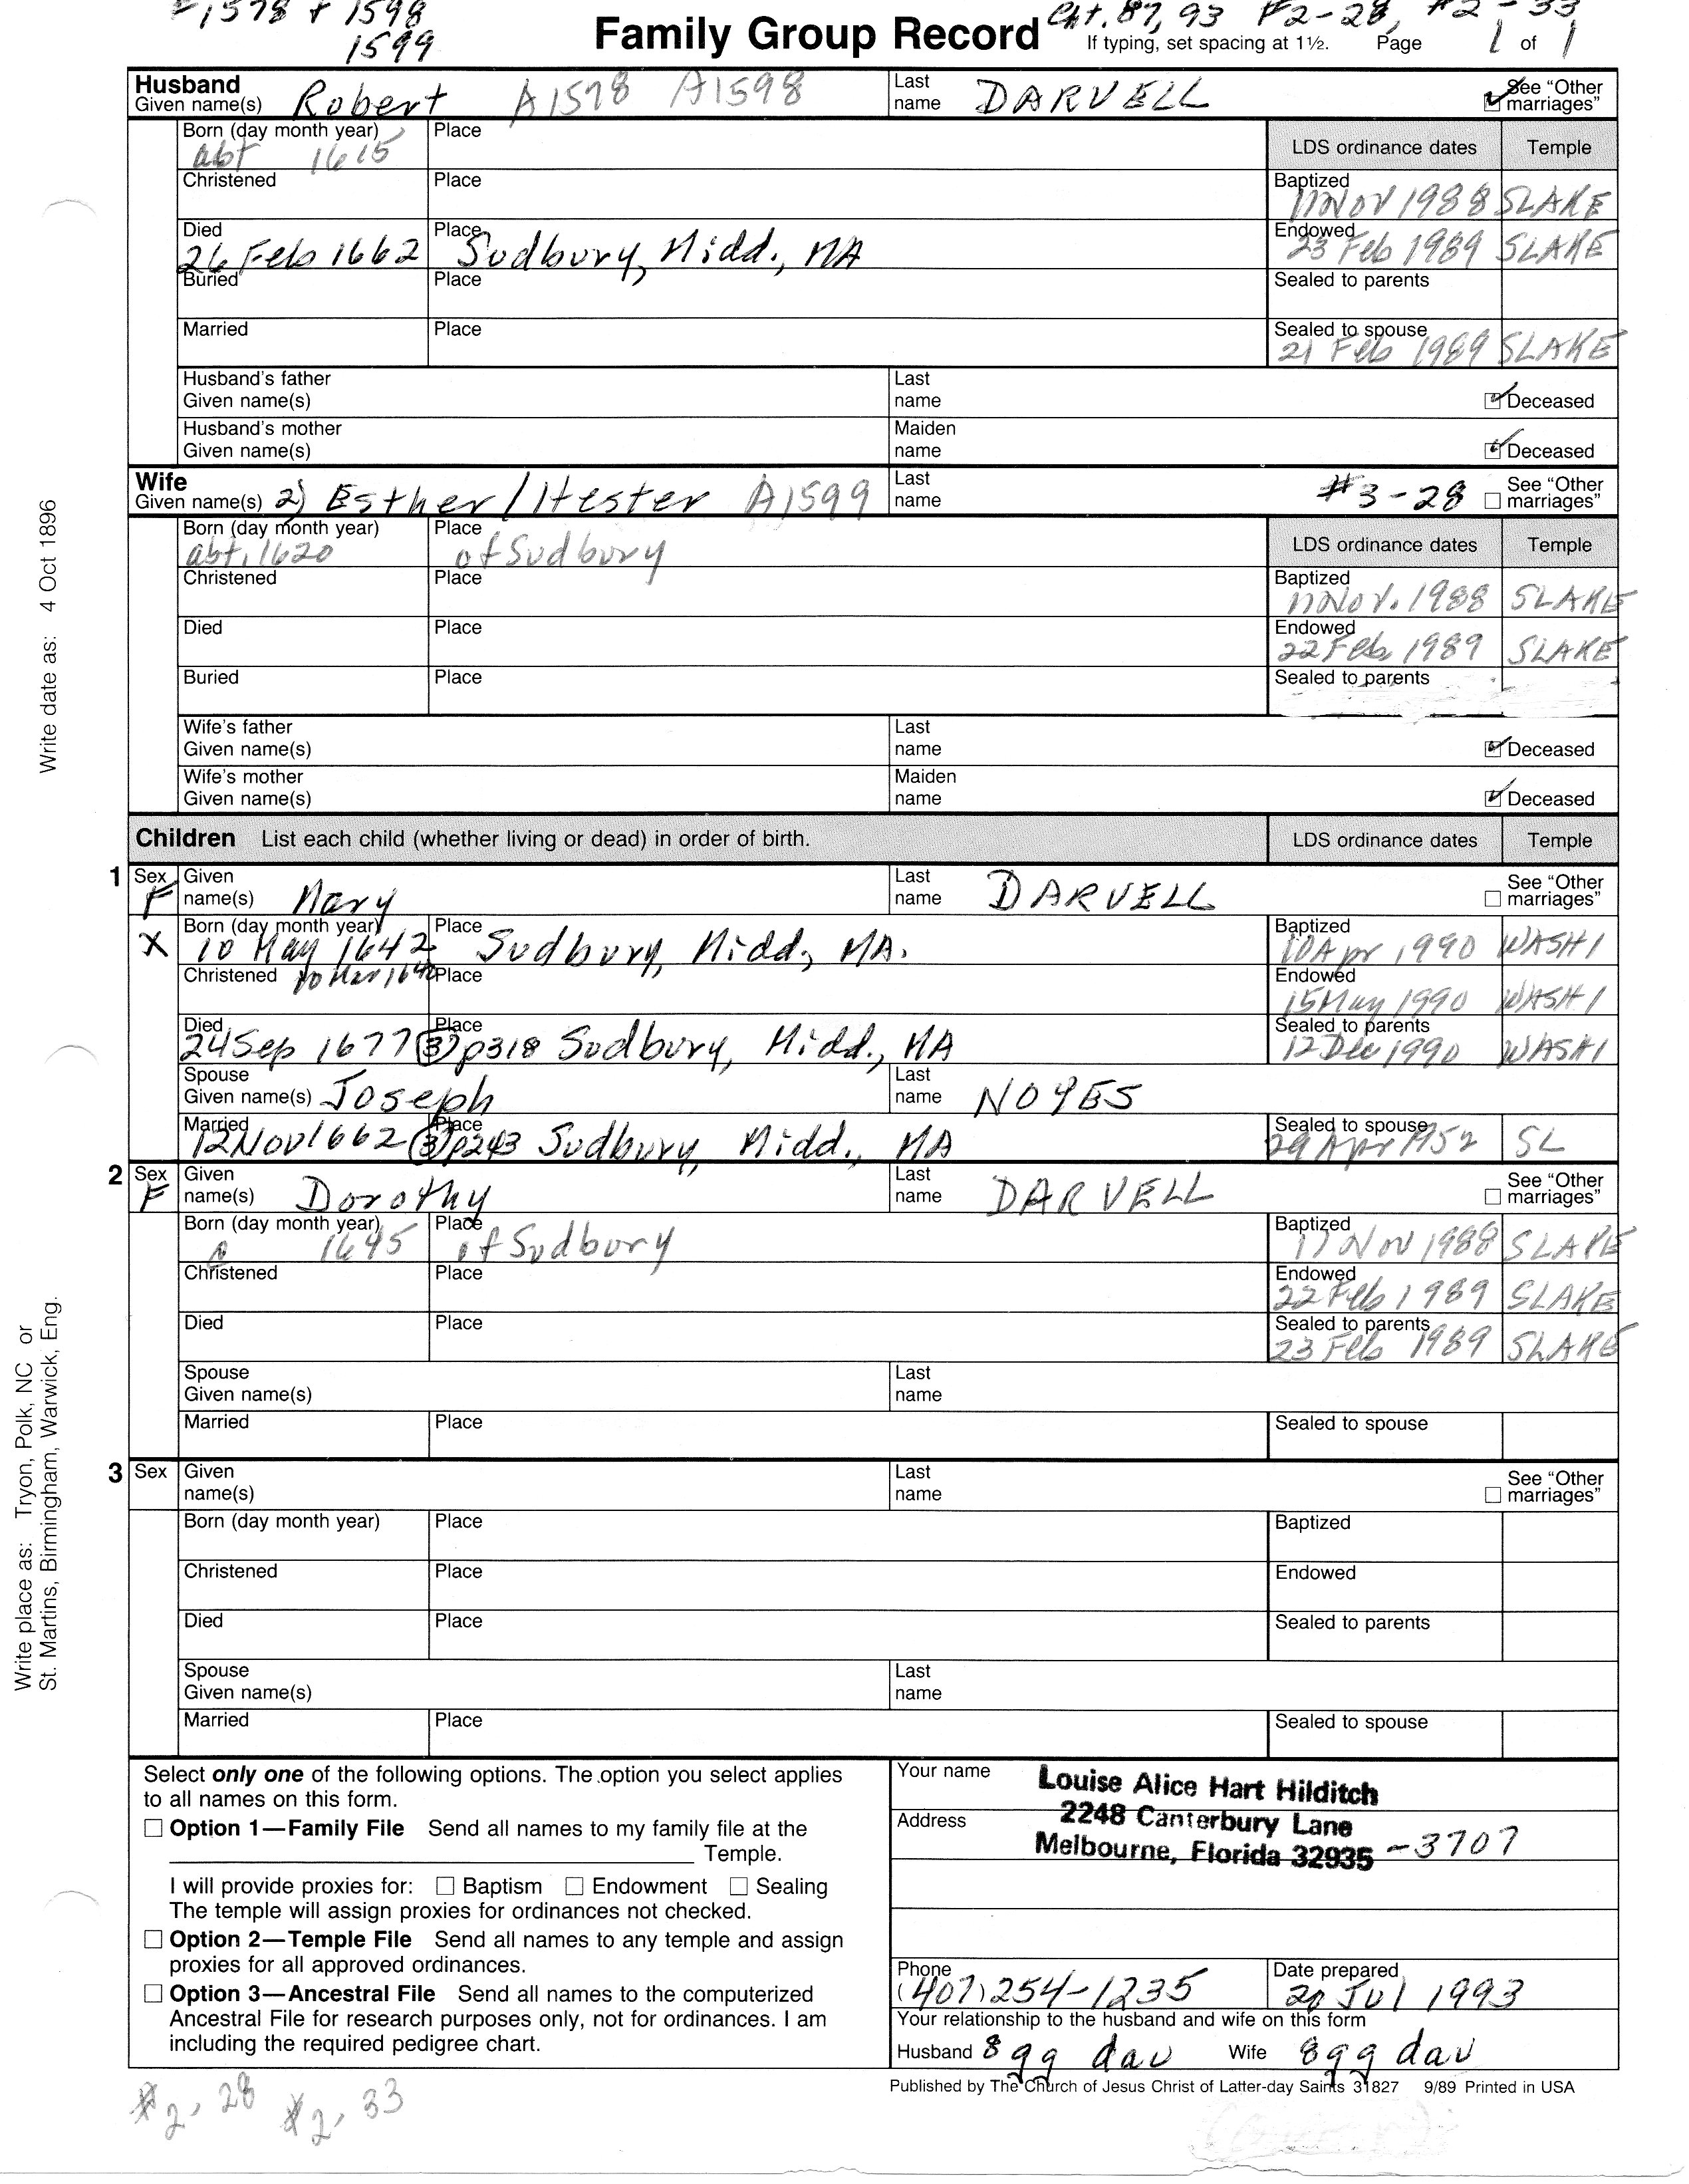 #1578 + 1598 Cht. 87, 93 #2-28, #2-33
1599 Family Group Record If typing, set spacing at 1½. Page 1 of 1
Husband
Given name(s) Robert A1578 A1598 Last name DARVELL See “Other marriages”
Born (day month year) abt 1615 Place LDS ordinance dates Temple
Christened Place Baptized 17 Nov 1988 SLAKE
Died 26 Feb 1662 Place Sudbury, Midd., MA Endowed 23 Feb 1989 SLAKE
Buried Place Sealed to parents
Married Place Sealed to spouse 21 Feb 1989 SLAKE
Husband's father
Given name(s) Last name Deceased
Husband's mother
Given name(s) Maiden name Deceased
Wife
Given name(s) 2) Esther/Hester A1599 Last name #3-28 See “Other marriages”
Born (day month year) abt. 1620 Place of Sudbury LDS ordinance dates Temple
Christened Place Baptized 17 Nov. 1988 SLAKE
Died Place Endowed 22 Feb 1989 SLAKE
Buried Place Sealed to parents
Wife's father
Given name(s) Last name Deceased
Wife's mother
Given name(s) Maiden name Deceased
Children List each child (whether living or dead) in order of birth. LDS ordinance dates Temple
1 Sex F Given name(s) Mary Last name DARVELL See “Other marriages”
X Born (day month year) 10 May 1642 Place Sudbury, Midd., MA. Baptized 10 Apr 1990 WASHI
Christened 10 Mar 1640 Place Endowed 15 May 1990 WASHI
Died 24 Sep 1677 (3) p318 Place Sudbury, Midd., MA Sealed to parents 12 Dec 1990 WASHI
Spouse
Given name(s) Joseph Last name NOYES
Married 12 Nov 1662 (3) p243 Place Sudbury, Midd., MA Sealed to spouse 29 Apr 1952 SL
2 Sex F Given name(s) Dorothy Last name DARVELL See “Other marriages”
Born (day month year) 1645 Place of Sudbury Baptized 17 Nov 1988 SLAKE
Christened Place Endowed 22 Feb 1989 SLAKE
Died Place Sealed to parents 23 Feb 1989 SLAKE
Spouse
Given name(s) Last name
Married Place Sealed to spouse
3 Sex Given name(s) Last name See “Other marriages”
Born (day month year) Place Baptized
Christened Place Endowed
Died Place Sealed to parents
Spouse
Given name(s) Last name
Married Place Sealed to spouse
Select only one of the following options. The option you select applies
to all names on this form.
Option 1—Family File Send all names to my family file at the
Temple.
I will provide proxies for: Baptism Endowment Sealing
The temple will assign proxies for ordinances not checked.
Option 2—Temple File Send all names to any temple and assign
proxies for all approved ordinances.
Option 3—Ancestral File Send all names to the computerized
Ancestral File for research purposes only, not for ordinances. I am
including the required pedigree chart.
Your name Louise Alice Hart Hilditch
Address 2248 Canterbury Lane
Melbourne, Florida 32935 -3707
Phone (407) 254-1235 Date prepared 20 Jul 1993
Your relationship to the husband and wife on this form
Husband 8 gg dau Wife 8gg dau
Published by The Church of Jesus Christ of Latter-day Saints 31827 9/89 Printed in USA
#2, 28 #2, 33
Write date as: 4 Oct 1896
Write place as: Tryon, Polk, NC or
St. Martins, Birmingham, Warwick, Eng.